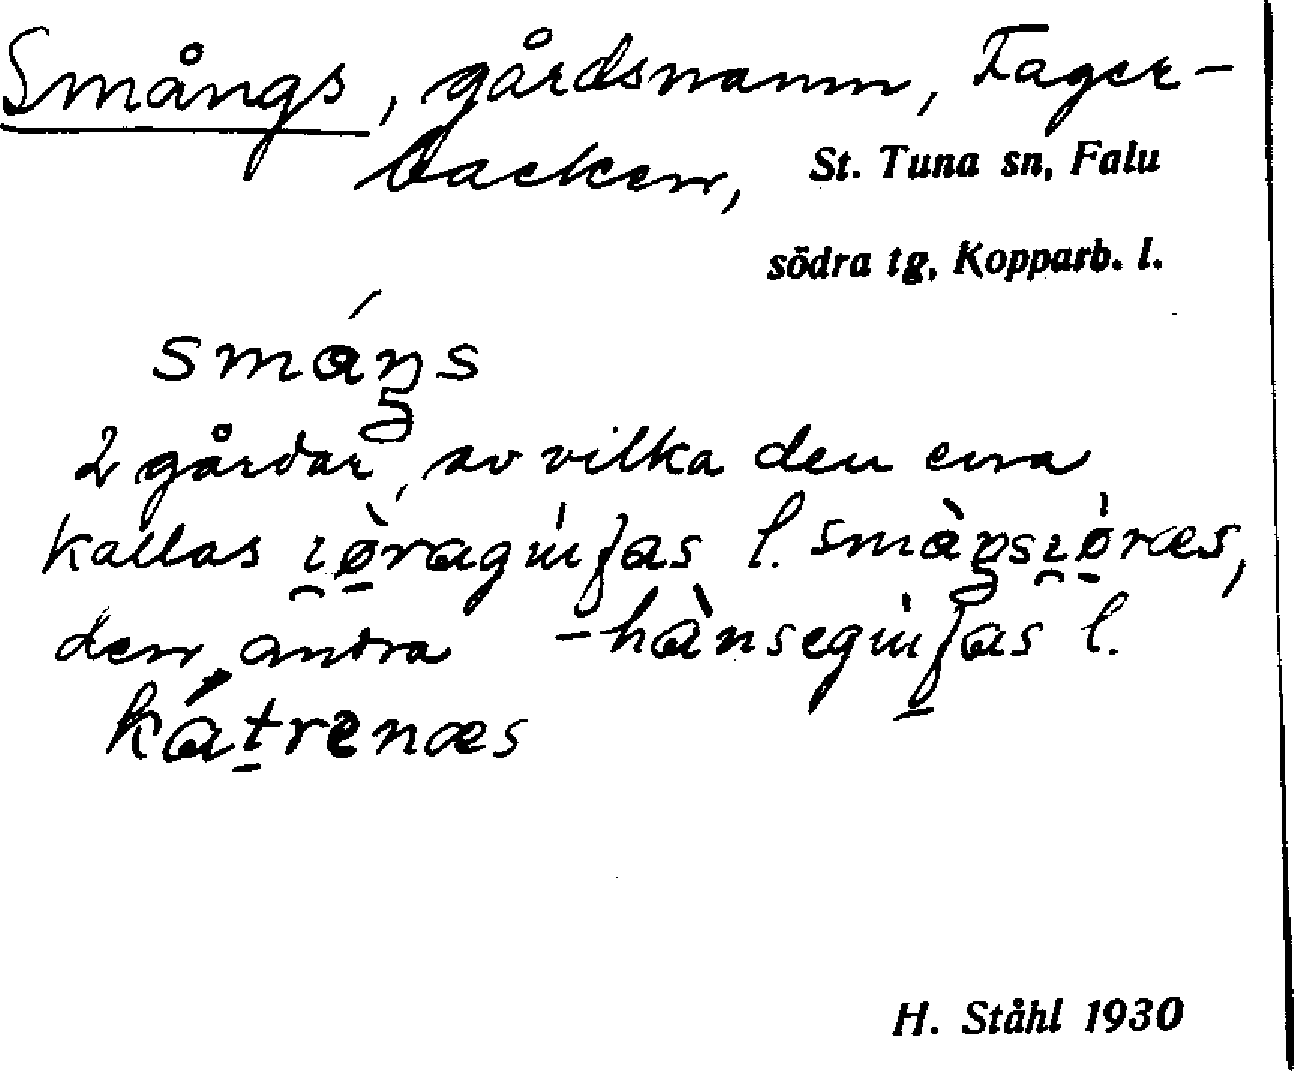 Smångs, gårdsnamn, Fager-
backen, St. Tuna sn, Falu
södra tg, Kopparb. l.
smáŋs
2 gårdar, av vilka den ena
kallas l.
den andra l.
kátrenæs
H. Ståhl 1930